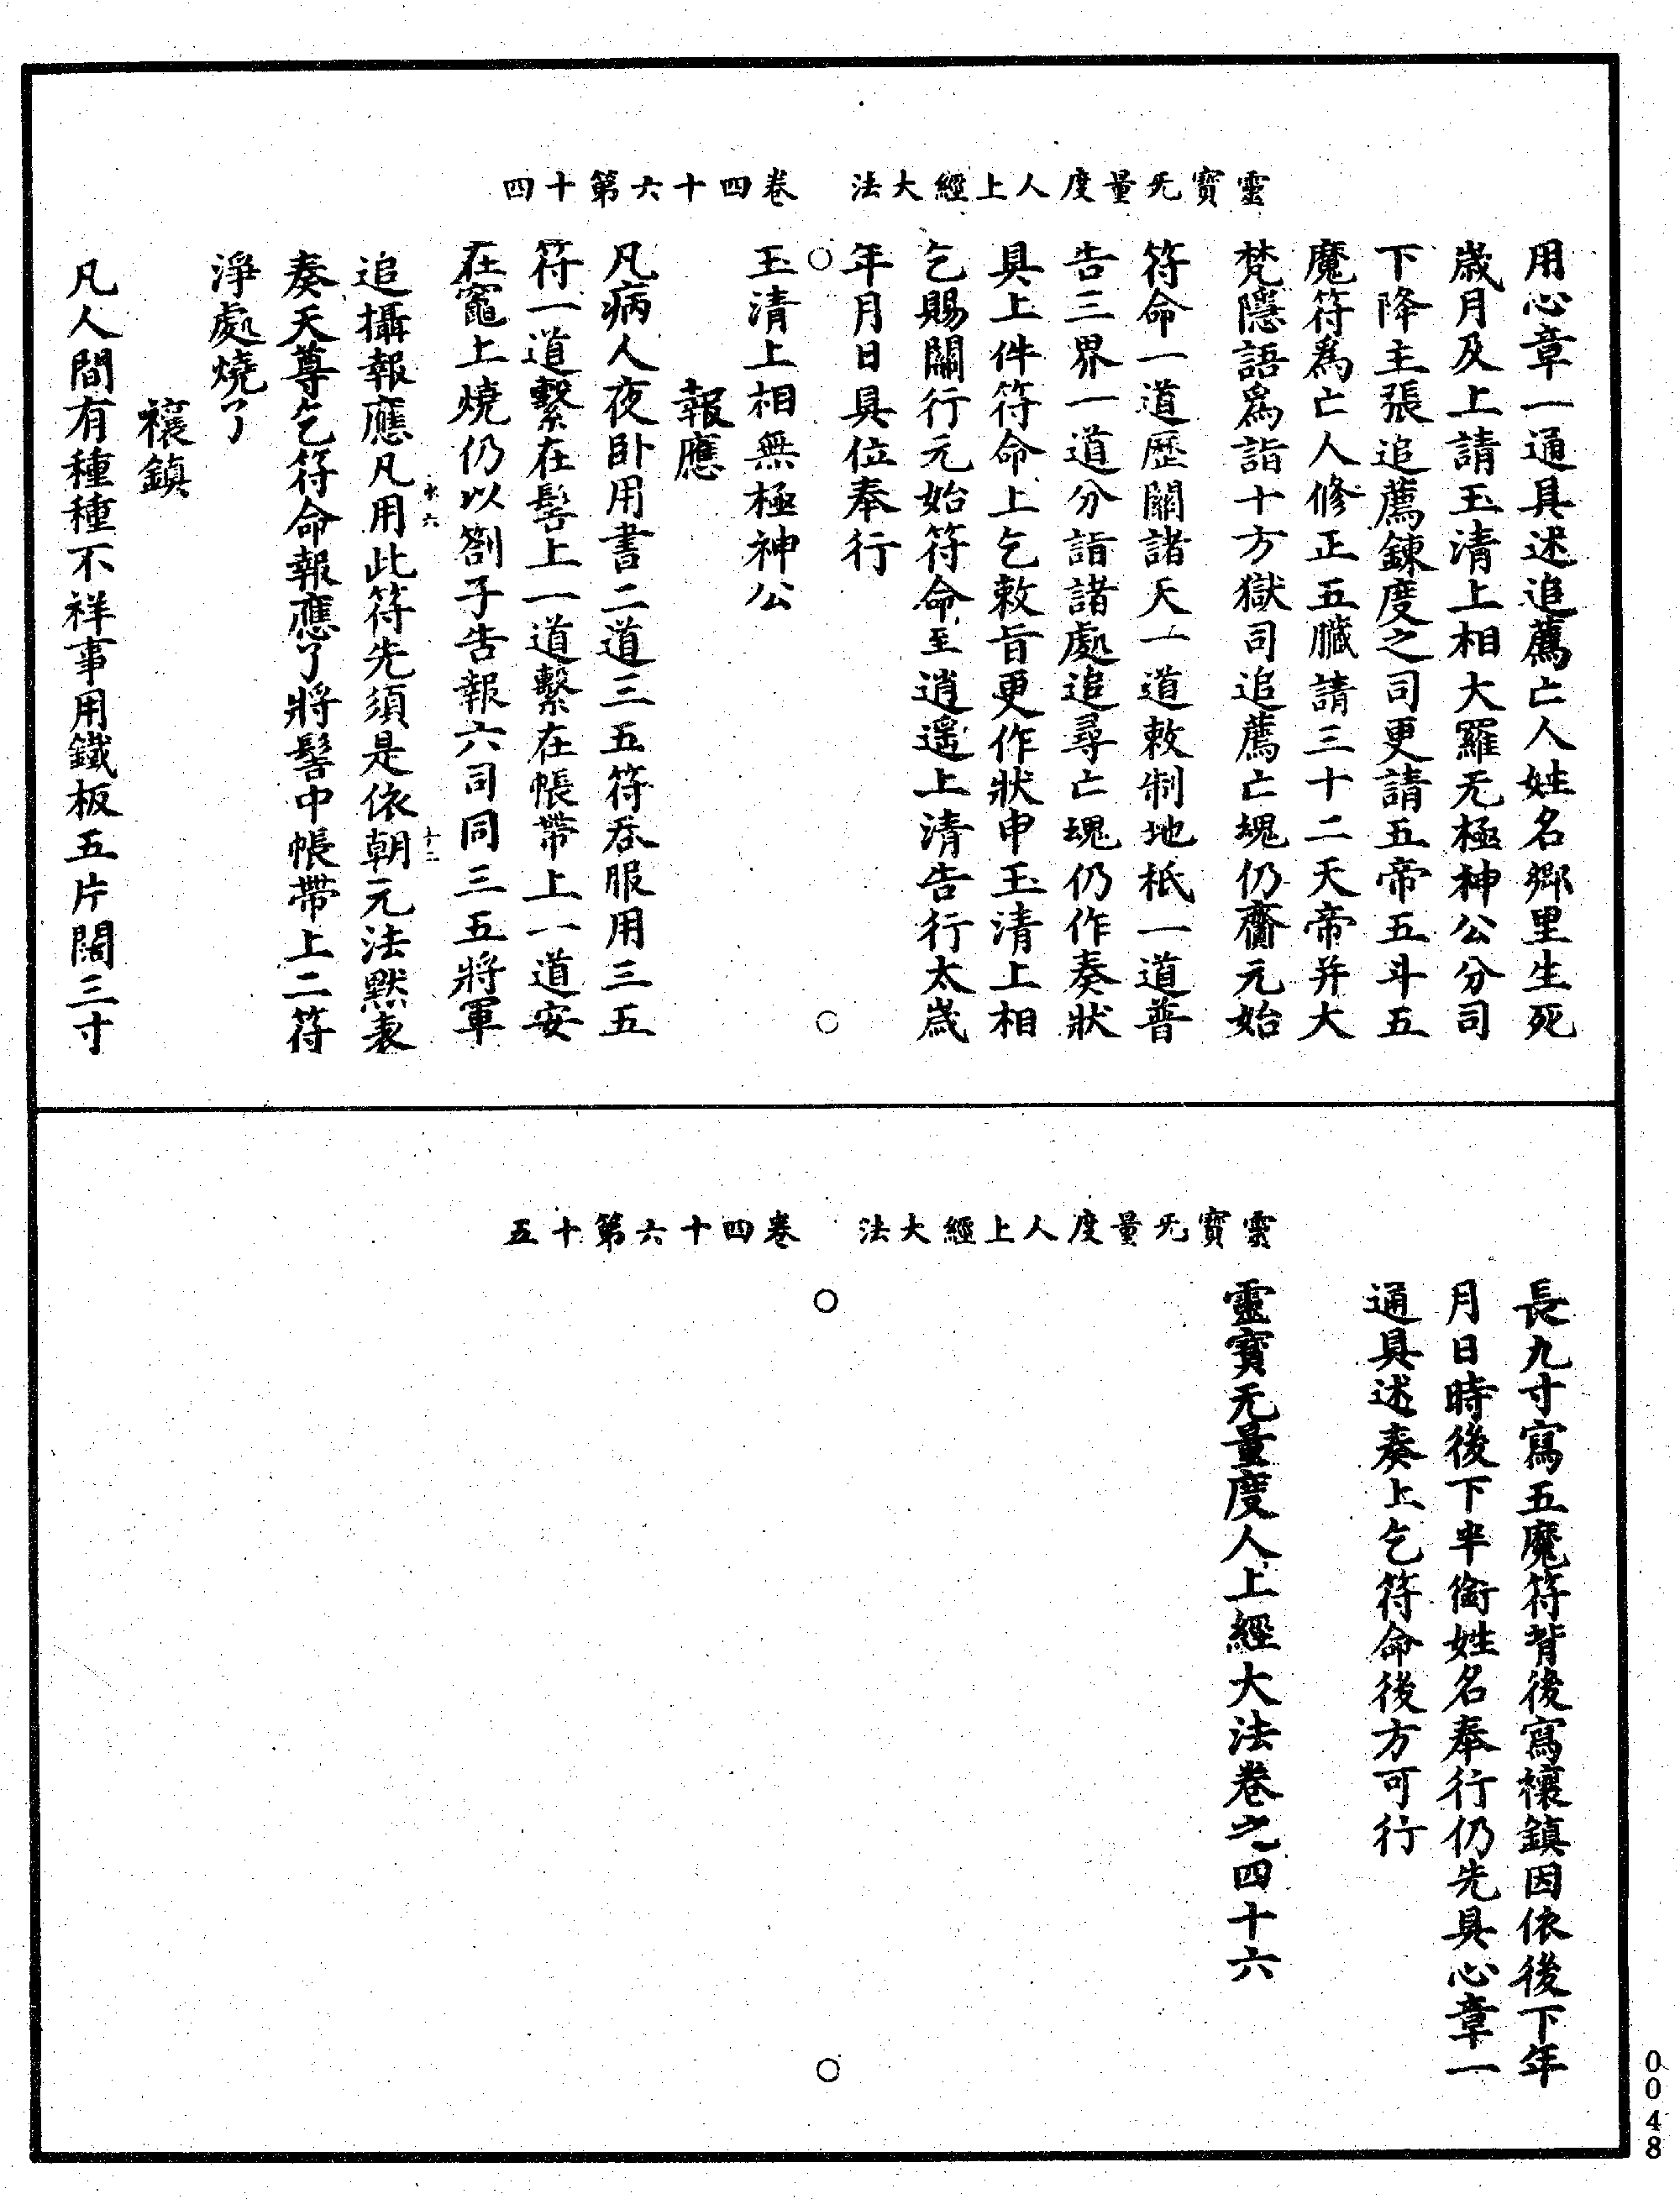 靈寳无量度人上經大法　卷四十六第十四
用心章一通具述追薦亡人姓名鄉里生死
歲月及上請玉清上相大羅无極神公分司
下降主張追薦鍊度之司更請五帝五斗五
魔符爲亡人修正五臟請三十二天帝并大
梵隱語爲詣十方獄司追薦亡魂仍齎元始
符命一道歷關諸天一道敕制地祇一道普
告三界一道分詣諸處追尋亡魂仍作奏狀
具上件符命上乞敕旨更作狀申玉清上相
乞賜關行元始符命至逍遥上清告行太歲
年月日具位奉行
玉清上相無極神公
報應
凡病人夜卧用書二道三五符吞服用三五
符一道繫在髻上一道繫在帳帶上一道安
在竈上燒仍以劄子告報六司同三五將軍
追攝報應凡用此符先須是依朝元法默表
奏天尊乞符命報應了將髻中帳帶上二符
淨處燒了
禳鎮
凡人間有種種不祥事用鐵板五片闊三寸
靈寳无量度人上經大法　卷四十六第十五
長九寸寫五魔符背後寫禳鎮因依後下年
月日時後下半銜姓名奉行仍先具心章一
通具述奏上乞符命後方可行
靈寳无量度人上經大法卷之四十六
0048